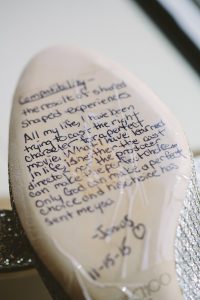 Compatibility -
the result of shared
shaped experiences
All my life, I have been
trying to cast the right
characters for a perfect
movie. What I have learned
in life is no one the cast
director
can make the perfect
Only God can make a perfect
choice and his choice has
sent me you
11-15-15 ♡